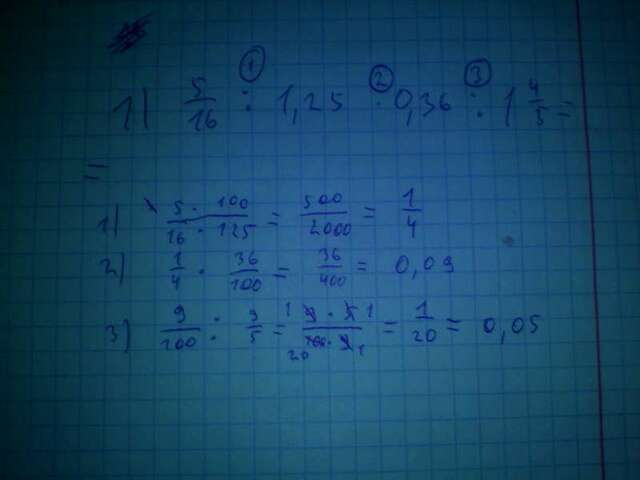 ① ② ③
1) 5/16 : 1,25 · 0,36 : 1 4/5 =
=
1) 5 · 100 / 16 · 125 = 500/2000 = 1/4
2) 1/4 · 36/100 = 36/400 = 0,09
3) 9/100 : 9/5 = 1 9 · 5 1 / 20 100 · 9 1 = 1/20 = 0,05